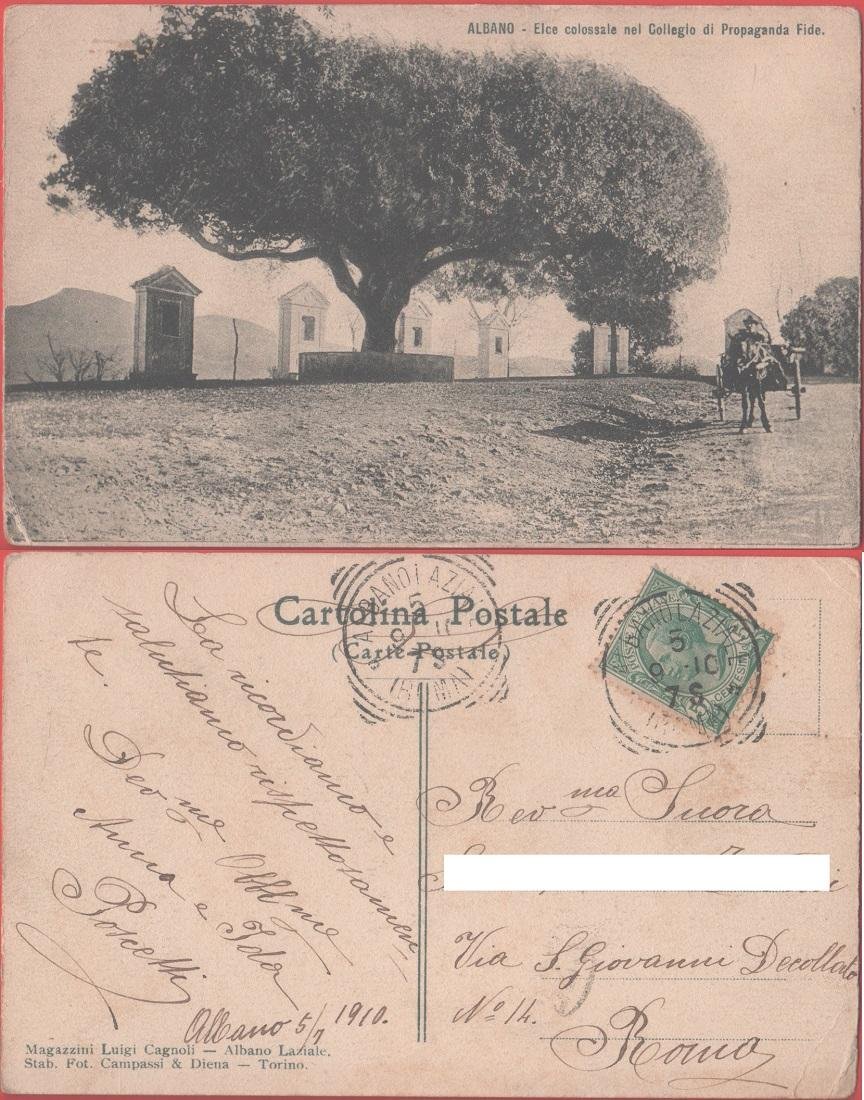 ALBANO - Elce colossale nel Collegio di Propaganda Fide.
Cartolina Postale
(Carte Postale)
ALBANO LAZIALE
5
7 S
(ROMA)
ALBANO LAZIALE
5
10
7 S
CENTESIMI
La ricordiamo e
salutiamo rispettosamen
te.
Dev me Obbl me
Anna e Ida
Poscetti
Albano 5/7 1910.
Rev ma Suora
Via S. Giovanni Decollato
No 14.
Roma
Magazzini Luigi Cagnoli — Albano Laziale.
Stab. Fot. Campassi & Diena — Torino.